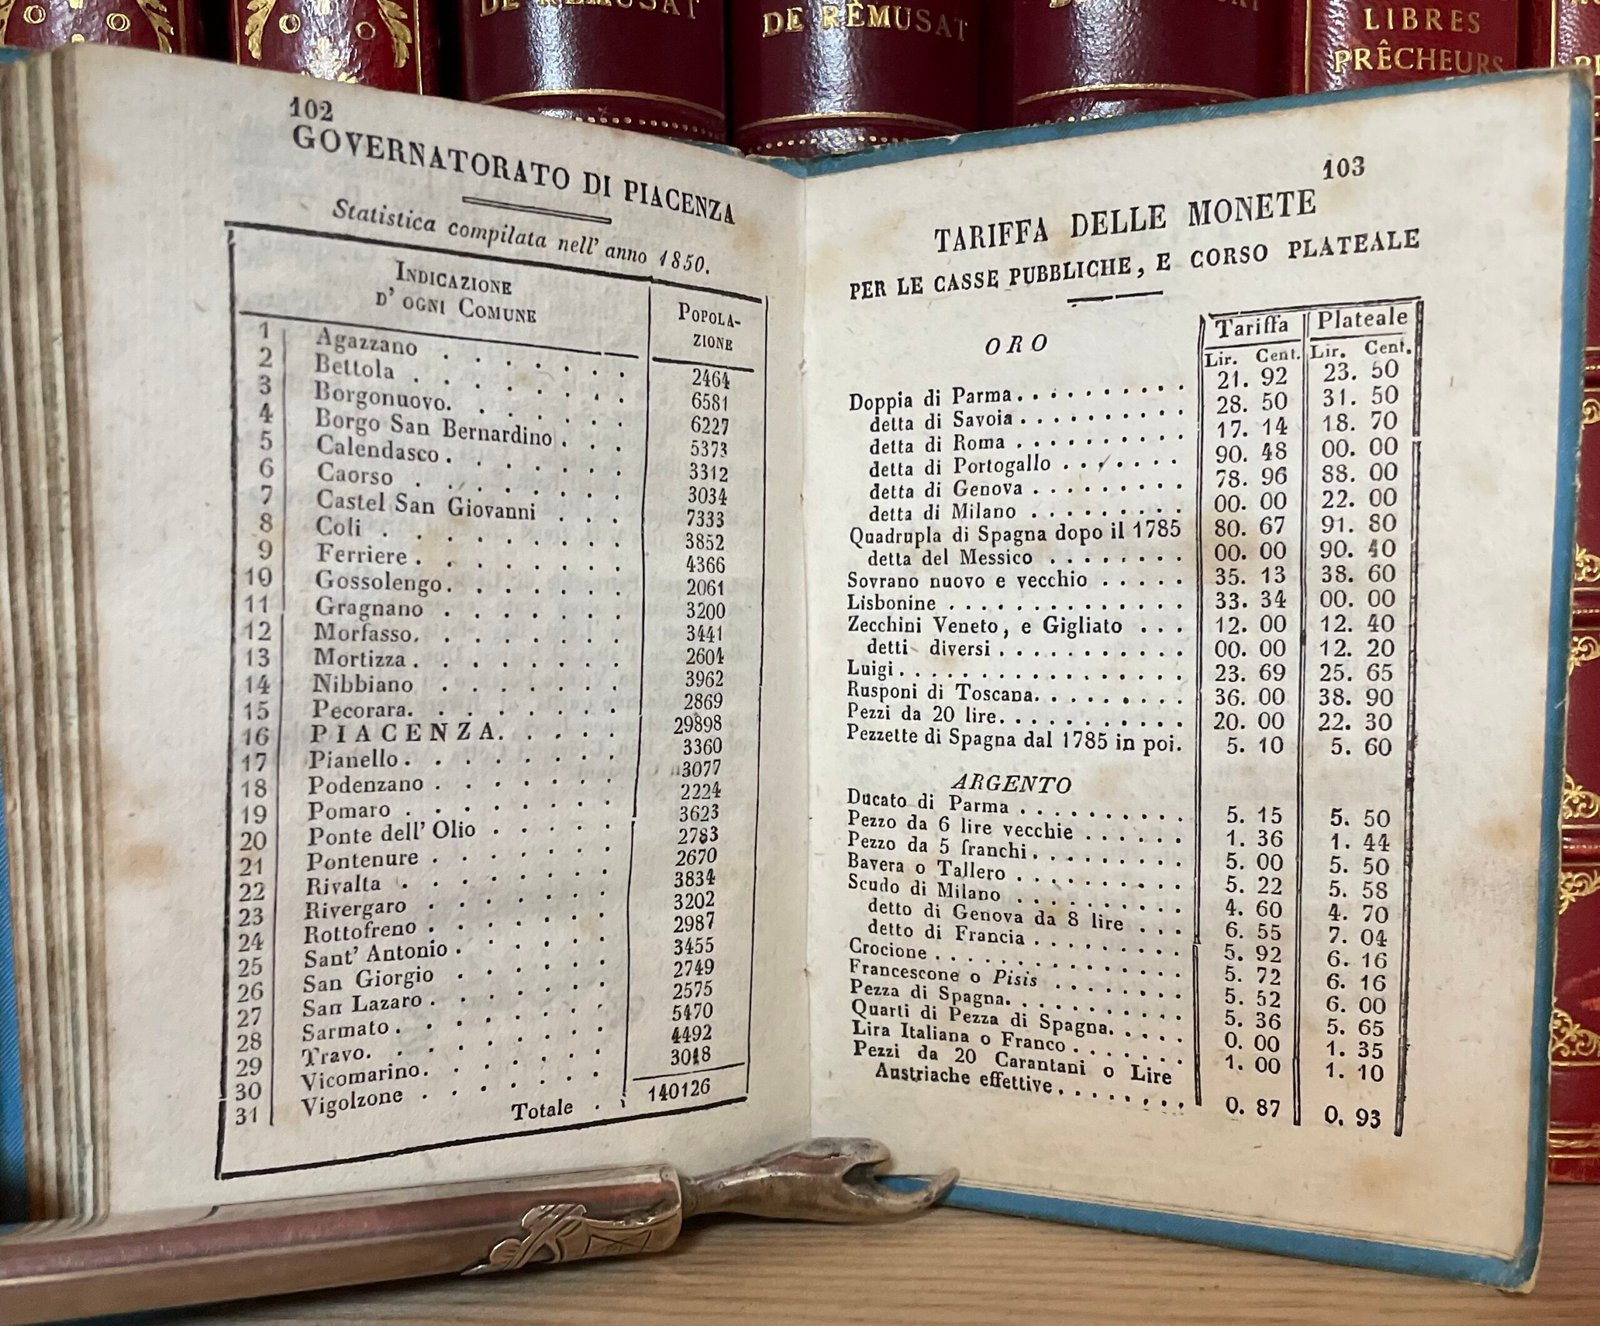 DE RÉMUSAT
DE RÉMUSAT
LIBRES
PRÊCHEURS
102
GOVERNATORATO DI PIACENZA
Statistica compilata nell' anno 1850.
INDICAZIONE
D' OGNI COMUNE
POPOLA-
ZIONE
1 Agazzano . . . . . . . 2464
2 Bettola . . . . . . . . 6581
3 Borgonuovo. . . . . . . 6227
4 Borgo San Bernardino . . . 5373
5 Calendasco . . . . . . . 3312
6 Caorso . . . . . . . . 3034
7 Castel San Giovanni . . . 7333
8 Coli . . . . . . . . . 3852
9 Ferriere . . . . . . . . 4366
10 Gossolengo. . . . . . . 2061
11 Gragnano . . . . . . . 3200
12 Morfasso. . . . . . . . 3441
13 Mortizza . . . . . . . . 2604
14 Nibbiano . . . . . . . 3962
15 Pecorara. . . . . . . . 2869
16 PIACENZA. . . . . 29898
17 Pianello . . . . . . . . 3360
18 Podenzano . . . . . . . 3077
19 Pomaro . . . . . . . . 2224
20 Ponte dell' Olio . . . . . 3623
21 Pontenure . . . . . . . 2783
22 Rivalta . . . . . . . . 2670
23 Rivergaro . . . . . . . 3834
24 Rottofreno . . . . . . . 3202
25 Sant' Antonio . . . . . . 2987
26 San Giorgio . . . . . . 3455
27 San Lazaro . . . . . . . 2749
28 Sarmato . . . . . . . . 2575
29 Travo. . . . . . . . . 5470
30 Vicomarino. . . . . . . 4492
31 Vigolzone . . . . . . . 3018
Totale . 140126
103
TARIFFA DELLE MONETE
PER LE CASSE PUBBLICHE, E CORSO PLATEALE
Tariffa Plateale
ORO Lir. Cent. Lir. Cent.
Doppia di Parma . . . . . . . . . . 21. 92 23. 50
detta di Savoia . . . . . . . . . . 28. 50 31. 50
detta di Roma . . . . . . . . . . 17. 14 18. 70
detta di Portogallo . . . . . . . 90. 48 00. 00
detta di Genova . . . . . . . . . 78. 96 88. 00
detta di Milano . . . . . . . . . 00. 00 22. 00
Quadrupla di Spagna dopo il 1785 80. 67 91. 80
detta del Messico . . . . . . . . 00. 00 90. 40
Sovrano nuovo e vecchio . . . . . 35. 13 38. 60
Lisbonine . . . . . . . . . . . . . 33. 34 00. 00
Zecchini Veneto, e Gigliato . . . 12. 00 12. 40
detti diversi . . . . . . . . . . . 00. 00 12. 20
Luigi . . . . . . . . . . . . . . . . 23. 69 25. 65
Rusponi di Toscana. . . . . . . . . 36. 00 38. 90
Pezzi da 20 lire. . . . . . . . . . . 20. 00 22. 30
Pezzette di Spagna dal 1785 in poi. 5. 10 5. 60
ARGENTO
Ducato di Parma . . . . . . . . . . 5. 15 5. 50
Pezzo da 6 lire vecchie . . . . . . 1. 36 1. 44
Pezzo da 5 franchi . . . . . . . . . 5. 00 5. 50
Bavera o Tallero . . . . . . . . . . 5. 22 5. 58
Scudo di Milano . . . . . . . . . . 4. 60 4. 70
detto di Genova da 8 lire . . . 6. 55 7. 04
detto di Francia . . . . . . . . . 5. 92 6. 16
Crocione . . . . . . . . . . . . . . 5. 72 6. 16
Francescone o Pisis . . . . . . . . 5. 52 6. 00
Pezza di Spagna. . . . . . . . . . . 5. 36 5. 65
Quarti di Pezza di Spagna. . . . . 0. 00 1. 35
Lira Italiana o Franco . . . . . . . 1. 00 1. 10
Pezzi da 20 Carantani o Lire
Austriache effettive . . . . . . . . 0. 87 0. 93